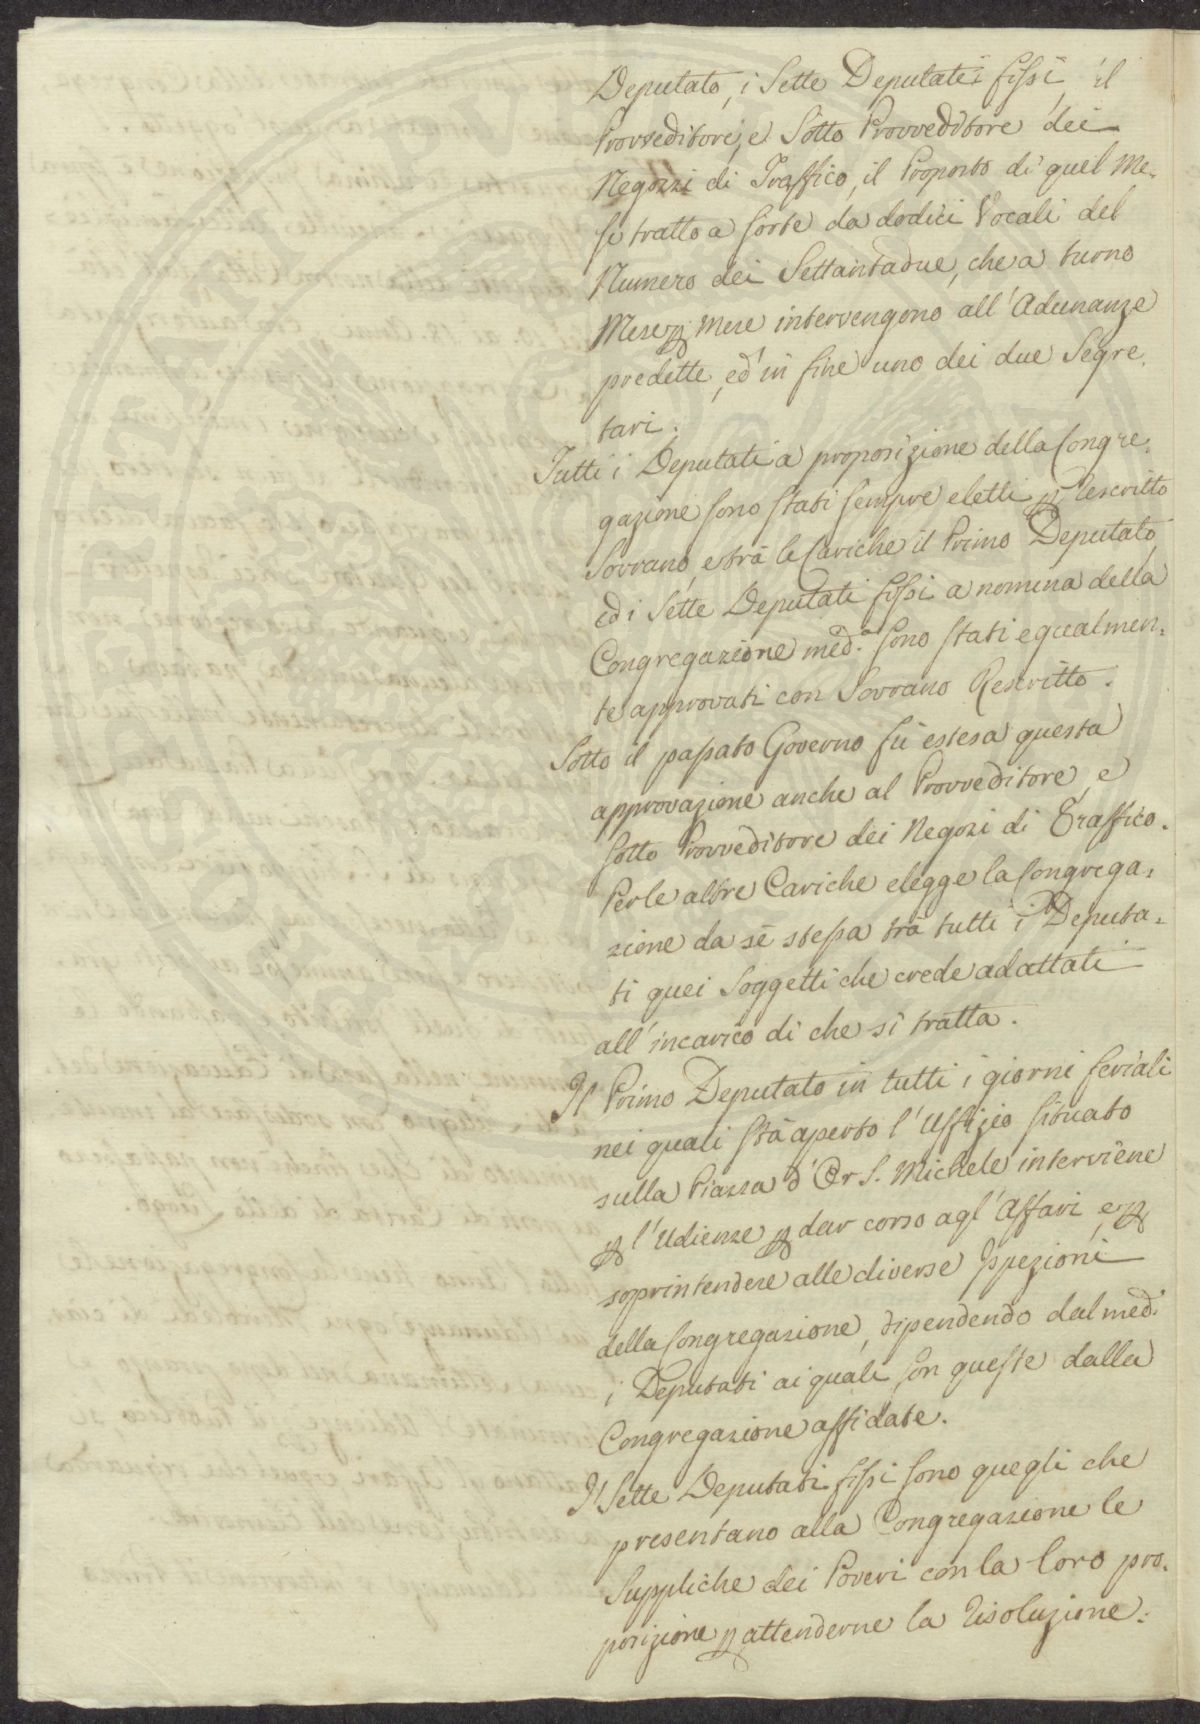 Deputato, i Sette Deputati fissi, il
Provveditore, e Sotto Provveditore dei
Negozzi di Traffico, il Proposto di quel Me-
se tratto a sorte da dodici Vocali del
Numero dei Settantadue, che a turno
Mese p Mese intervengono all'Adunanze
predette, ed in fine uno dei due Segre-
tari.
Tutti i Deputati a proposizione della Congre-
gazione sono stati sempre eletti p Rescritto
Sovrano, e trà le Cariche il Primo Deputato,
ed i Sette Deputati fissi a nomina della
Congregazione med.ª sono stati egualmen-
te approvati con Sovrano Rescritto.
Sotto il passato Governo fù estesa questa
approvazione anche al Provveditore, e
Sotto Provveditore dei Negozi di Traffico.
Per le altre Cariche elegge la Congrega-
zione da sè stessa trà tutti i Deputa-
ti quei Soggetti che crede adattati
all'incarico di che si tratta.
Il Primo Deputato in tutti i giorni feriali
nei quali stà aperto l'Uffizio situato
sulla Piazza d'Or S. Michele interviene
p l'Udienze p dar corso agl'Affari, e p
soprintendere alle diverse Ispezioni
della Congregazione, dipendendo dal med.
i Deputati ai quali son queste dalla
Congregazione affidate.
I Sette Deputati fissi sono quegli che
presentano alla Congregazione le
Suppliche dei Poveri con la loro pro-
posizione p attenderne la Risoluzione.